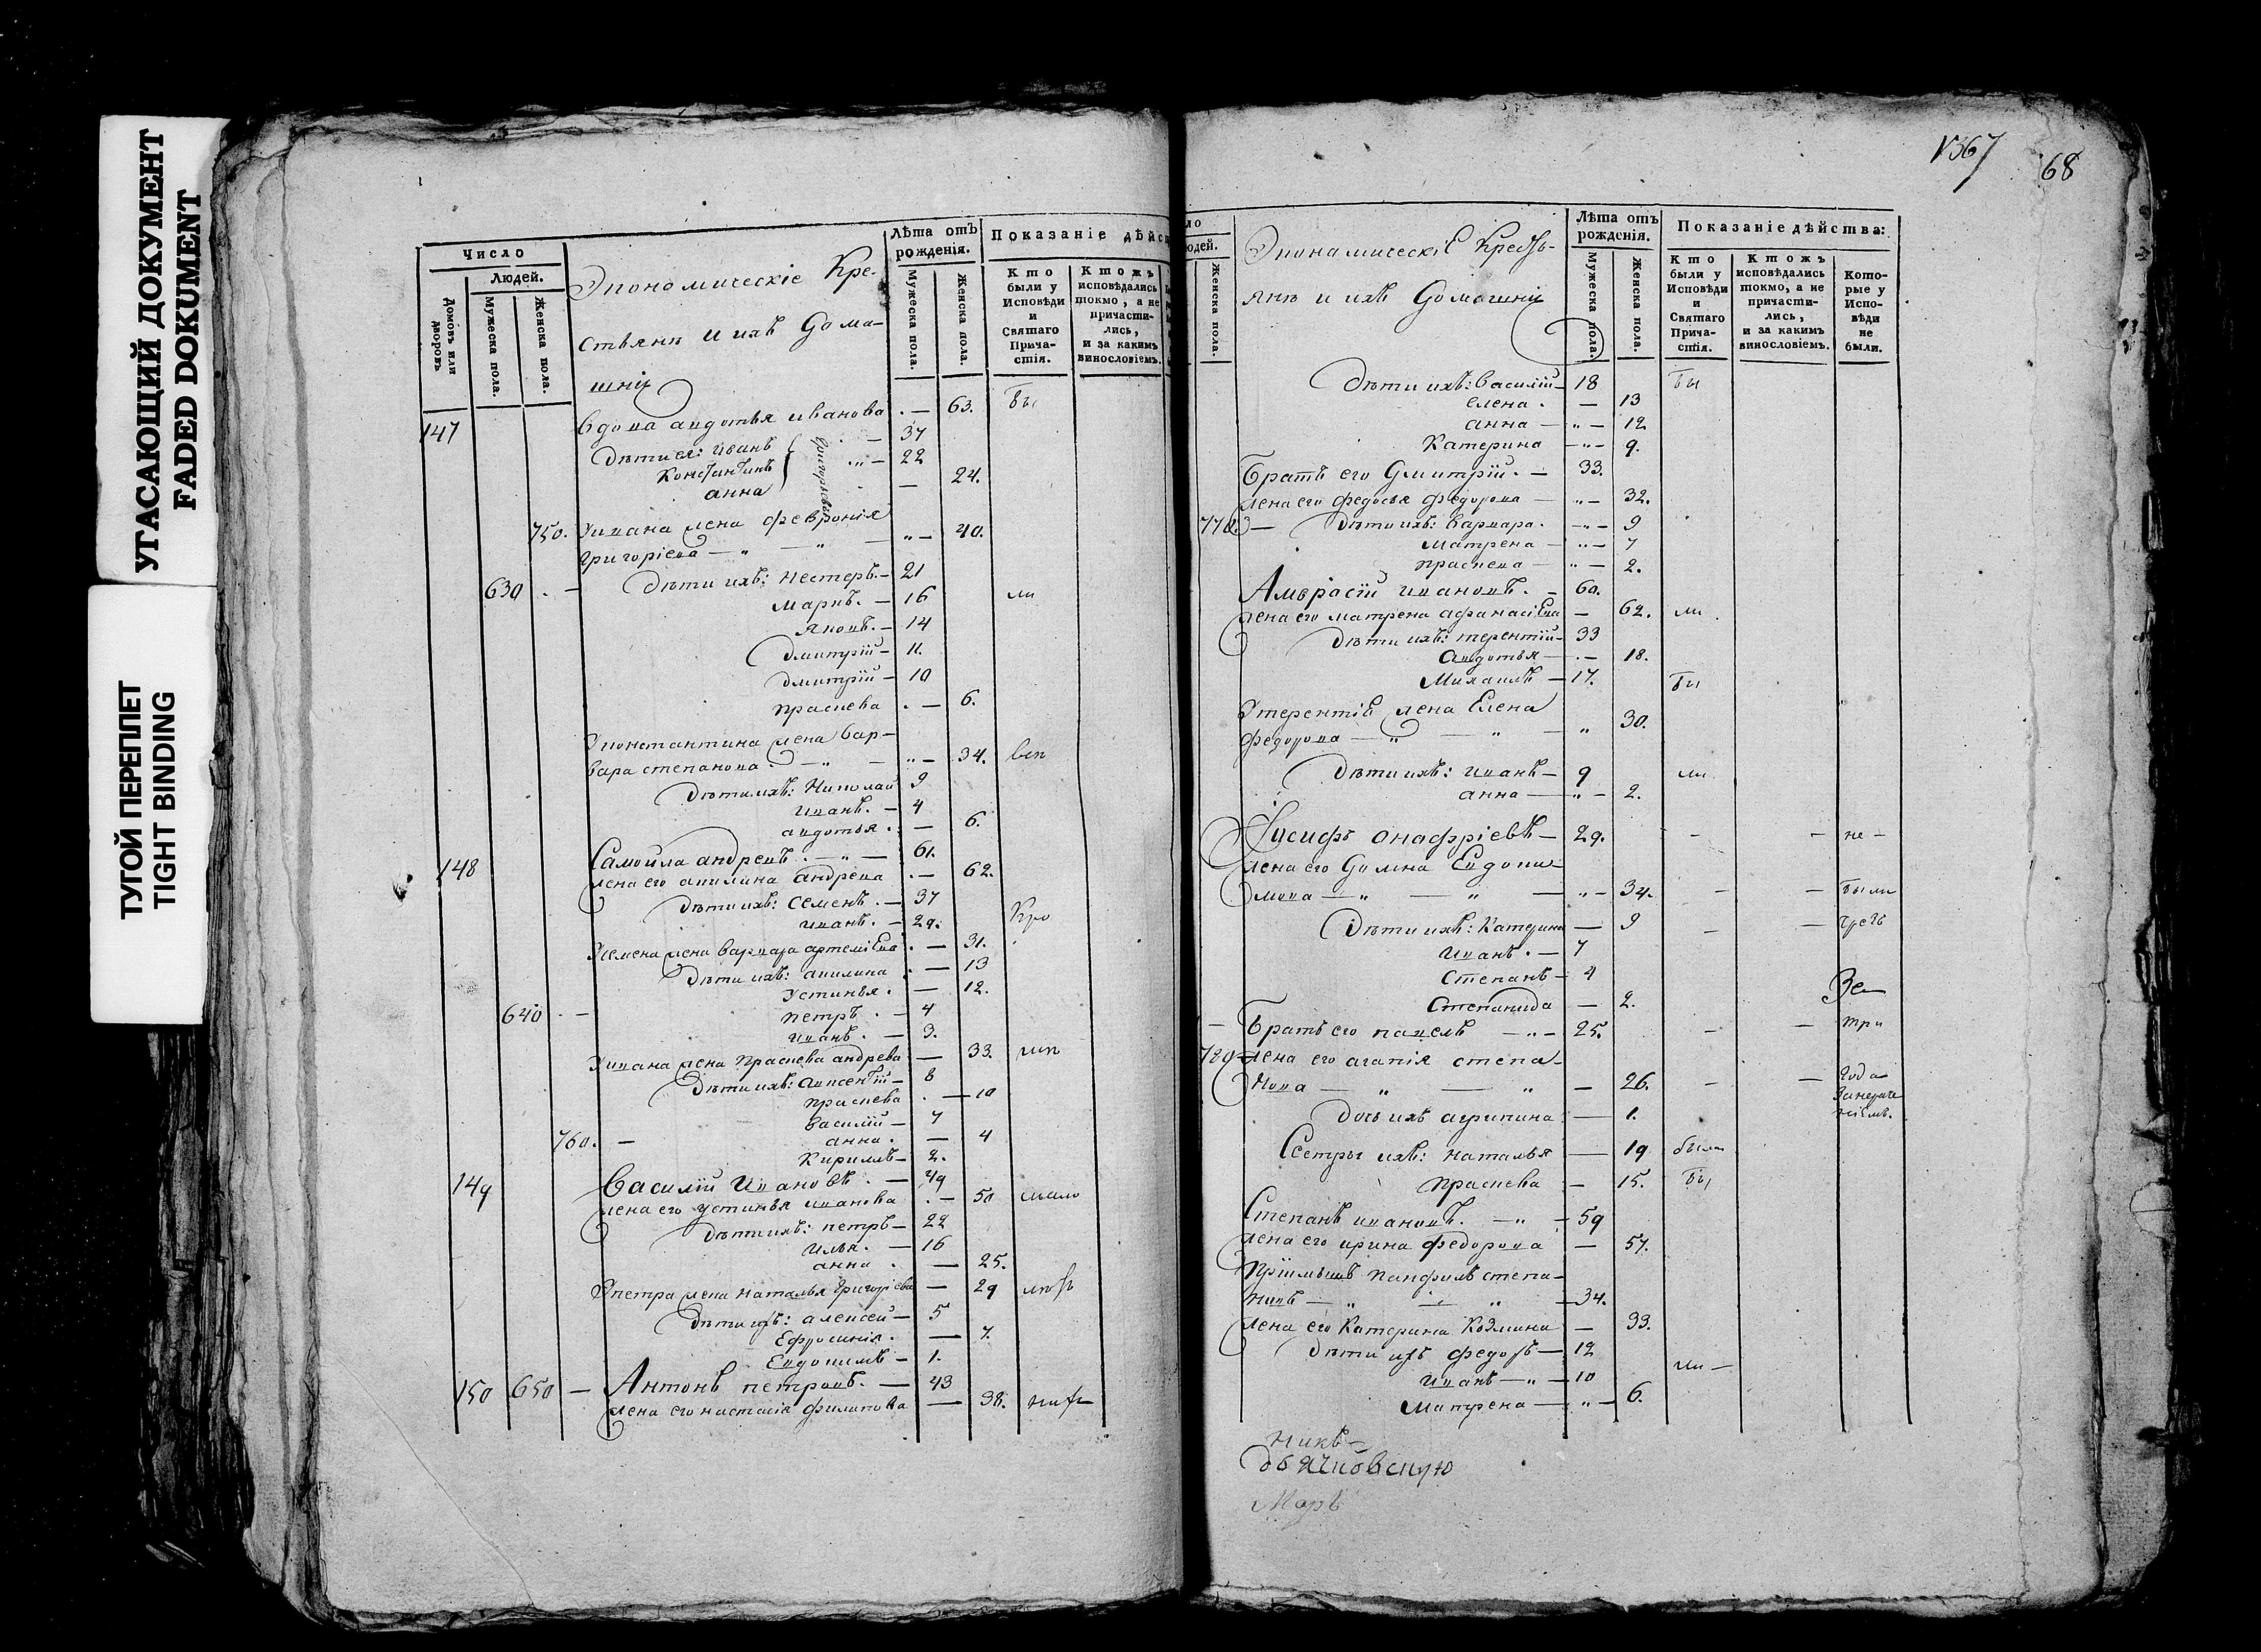 УГАСАЮЩИЙ ДОКУМЕНТ
FADED DOKUMENT
ТУГОЙ ПЕРЕПЛЕТ
TIGHT BINDING
Число
Людей.
Домовъ или дворовъ
Мужеска пола.
Женска пола.
Экономическіе Кре-
стьянъ и ихъ Дома-
шніх
Лѣта отъ рожденія.
Мужеска пола.
Женска пола.
Показаніе дѣйс
Кто были у Исповѣди и Святаго Прича-стія.
Ктожъ исповѣдались токмо, а не причасти-лись, и за какимъ винословіемъ.
147 Вдова авдотья иванова 63. Бы
Дѣти ея: иванъ 37
Константинъ 22
анна 24.
Григорьевы
750. Уивана жена феврониа
григоріева 40.
630 Дѣти ихъ: нестеръ 21
маркъ. 16 ли
яковъ. 14
дмитрій 11.
дмитрій 10
праскева 6.
Уконстантина жена вар-
вара степанова. 34. всп
Дѣти ихъ: Николай 9
иванъ. 4
авдотья. 6.
148 Самойла андреевъ. 61.
жена его акилина андреева 62.
Дѣти ихъ: Семенъ. 37
иванъ. 29. Кро
Усемена жена варвара артеміева 31.
Дѣти ихъ: акилина 13
устинья. 12.
640 петръ. 4
иванъ. 3.
Уивана жена праскева андреева 33.
Дѣти ихъ: авксентій 8
праскева 10
василій 7
760. анна. 4
Кирилъ 2.
149 Василій Ивановъ. 49
жена его устинья иванова 50
Дѣти ихъ: петръ 22
илья. 16
анна 25.
Упетра жена наталья григоріева 29
Дѣти ихъ: алексей 5
Ефросинія. 7.
Евдокимъ 1.
150 650 Антонъ петровъ. 43
жена его настасія филипова 38.
1367
68
ло
юдей.
Женска пола.
Экономическіе Кресть-
янъ и ихъ Домашніх
Лѣта отъ рожденія.
Мужеска пола.
Женска пола.
Показаніе дѣйства:
Кто были у Исповѣди и Святаго Прича-стія.
Ктожъ исповѣдались токмо, а не причасти-лись, и за какимъ винословіемъ.
Кото-рые у Испо-вѣди не были.
Дѣти ихъ: василій 18 Бы
елена. 13
анна 12.
Катерина 9.
Братъ его Дмитрій. 33.
жена его федосья федорова 32.
770 Дѣти ихъ: варвара. 9
матрена 7
праскева 2.
Амвросій ивановъ. 60.
жена его матрена афанасіева 62. ли
Дѣти ихъ: терентій 33
авдотья 18.
Михаилъ 17. Бы
Утерентія жена Елена
федорова 30.
Дѣти ихъ: иванъ 9 ли
анна 2.
Іосифъ онафріевъ 29. не
жена его Домна Евдоки-
мова 34. были
Дѣти ихъ: Катерина 9 чрезъ
иванъ. 7
Степанъ 4
Степанида 2.
Братъ его павелъ 25. три
жена его агапія степа-
нова 26. года
Дочь ихъ агрипина 1.
Сестры ихъ: наталья 19 были
праскева 15. Бы
Степанъ ивановъ. 59
жена его ирина федорова 57.
Пріимышъ панфилъ степа-
новъ 34.
жена его Катерина Козмина 33.
Дѣти ихъ федоръ 12
иванъ 10 ли
Матрена 6.